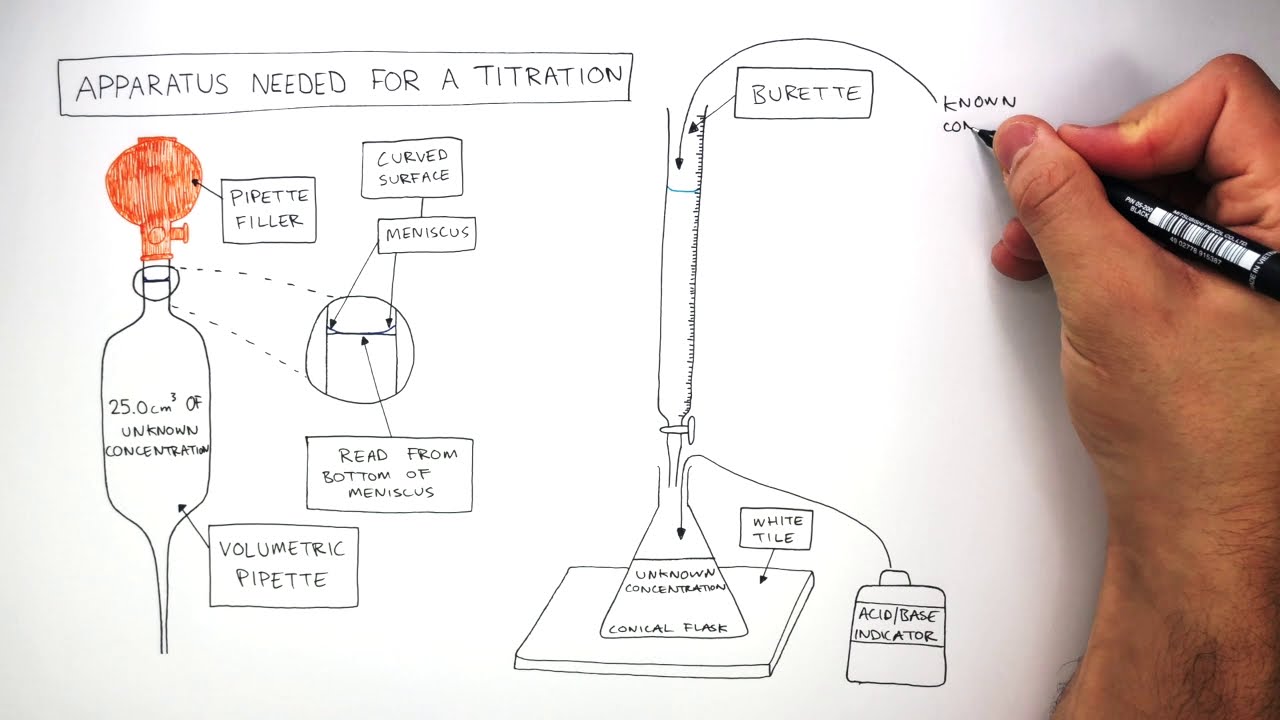 APPARATUS NEEDED FOR A TITRATION
PIPETTE
FILLER
CURVED
SURFACE
MENISCUS
25.0cm³ OF
UNKNOWN
CONCENTRATION
READ FROM
BOTTOM OF
MENISCUS
VOLUMETRIC
PIPETTE
BURETTE
KNOWN
CON
WHITE
TILE
UNKNOWN
CONCENTRATION
CONICAL FLASK
ACID/BASE
INDICATOR
PIN 05-200
BLACK
MITSUBISHI PENCIL CO., LTD
49 02778 915387